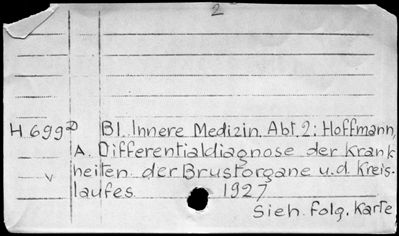 2
H 699 D Bl. Innere Medizin. Abt. 2: Hoffmann,
A. Differentialdiagnose der Krank
heiten der Brustorgane u. d. Kreis-
v laufes 1927
Sieh. folg. Karte